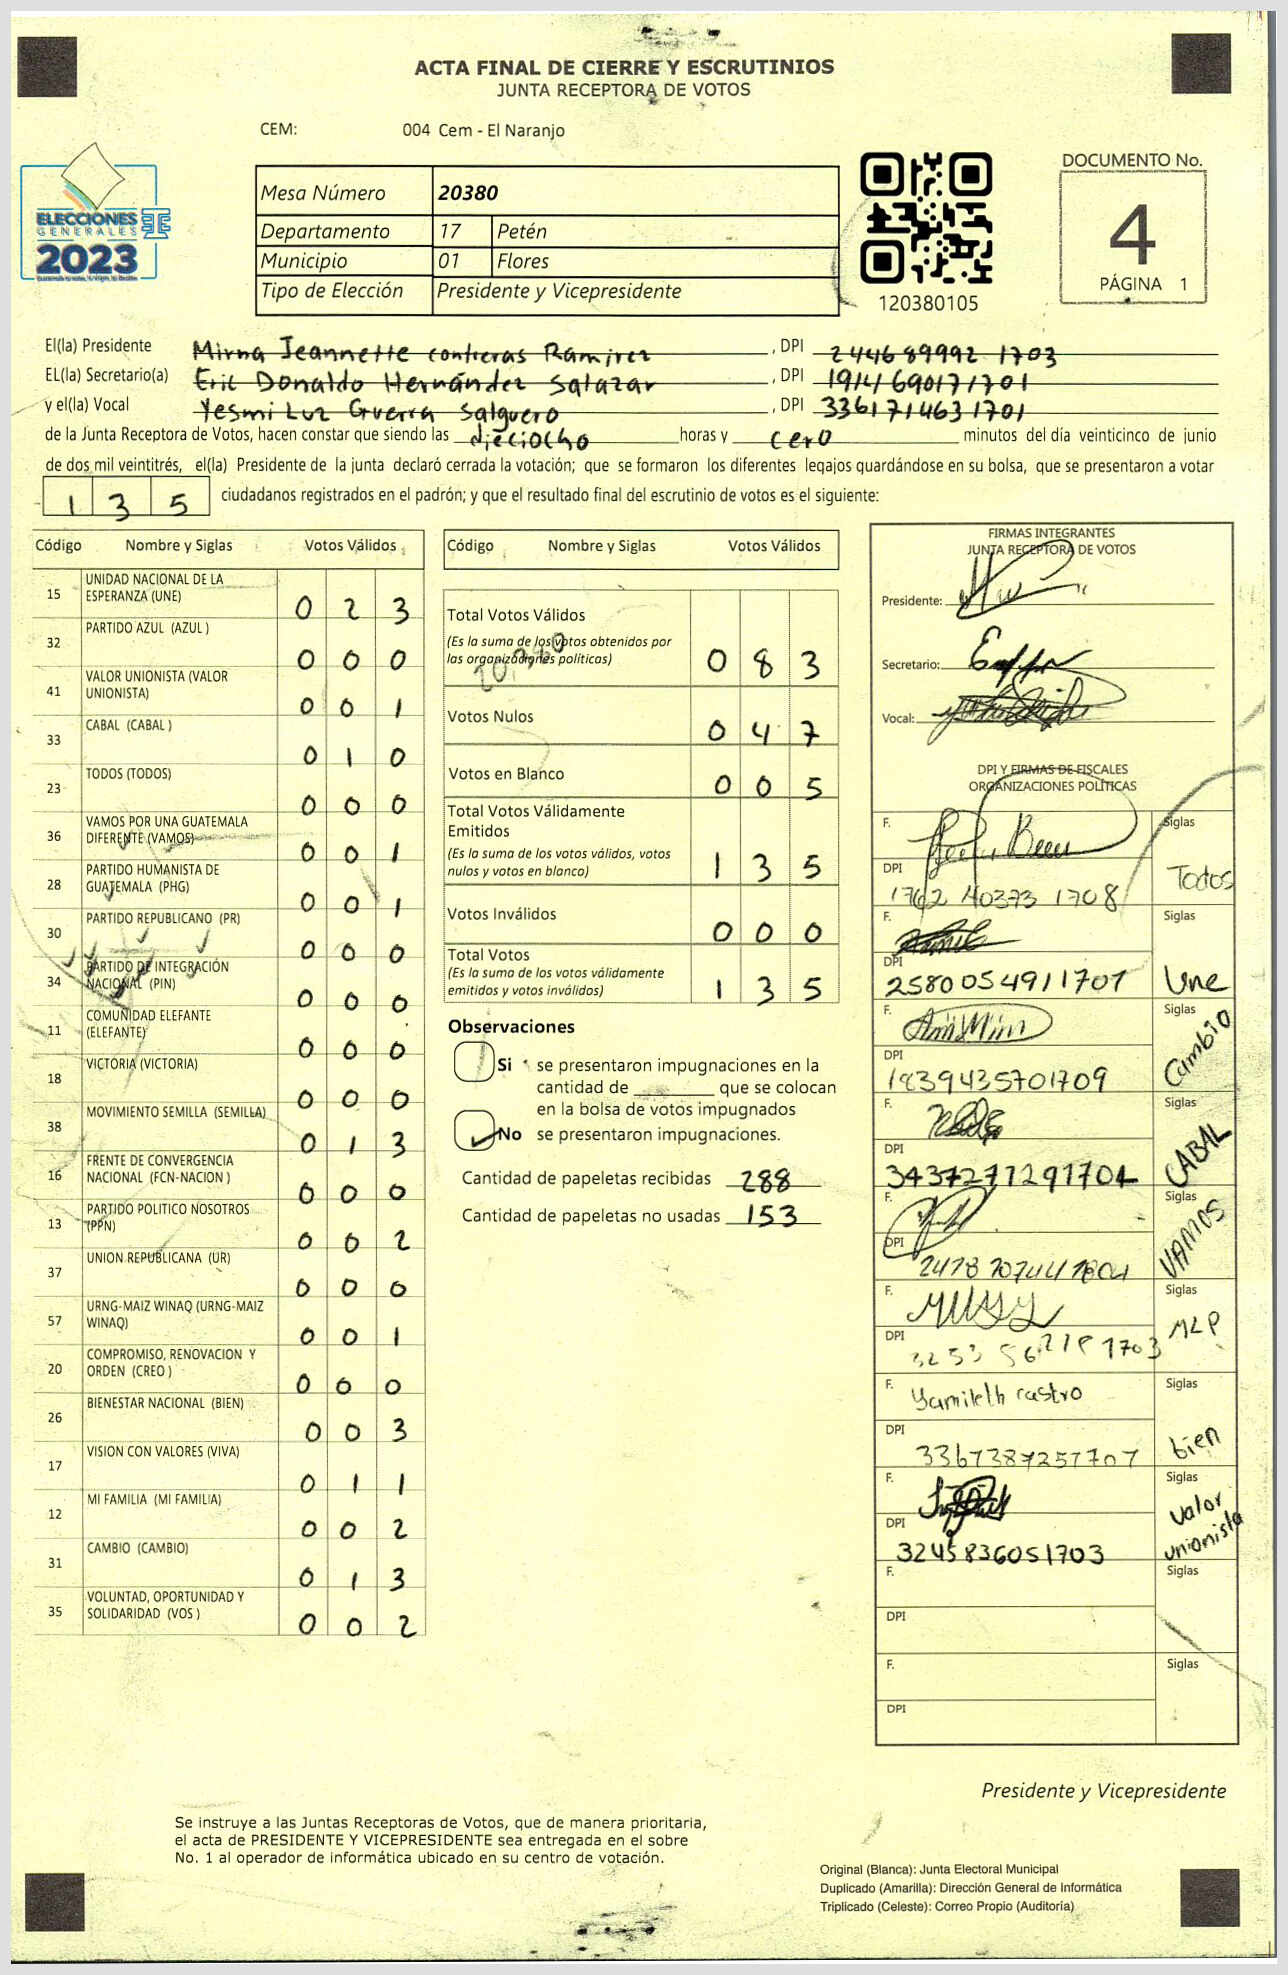 ACTA FINAL DE CIERRE Y ESCRUTINIOS
JUNTA RECEPTORA DE VOTOS
CEM: 004 Cem - El Naranjo
ELECCIONES
GENERALES
2023
Mesa Número 20380
Departamento 17 Petén
Municipio 01 Flores
Tipo de Elección Presidente y Vicepresidente
120380105
DOCUMENTO No.
4
PÁGINA 1
El(la) Presidente Mirna Jeannette contreras Ramirez , DPI 2446 89992 1703
EL(la) Secretario(a) Eric Donaldo Hernández Salazar , DPI 1914 69017 1701
y el(la) Vocal Yesmi Luz Guerra Salguero , DPI 336171463 1701
de la Junta Receptora de Votos, hacen constar que siendo las dieciocho horas y cero minutos del día veinticinco de junio
de dos mil veintitrés, el(la) Presidente de la junta declaró cerrada la votación; que se formaron los diferentes legajos guardándose en su bolsa, que se presentaron a votar
1 3 5 ciudadanos registrados en el padrón; y que el resultado final del escrutinio de votos es el siguiente:
Código Nombre y Siglas Votos Válidos
15 UNIDAD NACIONAL DE LA ESPERANZA (UNE) 0 2 3
32 PARTIDO AZUL (AZUL ) 0 0 0
41 VALOR UNIONISTA (VALOR UNIONISTA) 0 0 1
33 CABAL (CABAL ) 0 1 0
23 TODOS (TODOS) 0 0 0
36 VAMOS POR UNA GUATEMALA DIFERENTE (VAMOS) 0 0 1
28 PARTIDO HUMANISTA DE GUATEMALA (PHG) 0 0 1
30 PARTIDO REPUBLICANO (PR) 0 0 0
34 PARTIDO DE INTEGRACIÓN NACIONAL (PIN) 0 0 0
11 COMUNIDAD ELEFANTE (ELEFANTE) 0 0 0
18 VICTORIA (VICTORIA) 0 0 0
38 MOVIMIENTO SEMILLA (SEMILLA) 0 1 3
16 FRENTE DE CONVERGENCIA NACIONAL (FCN-NACION ) 0 0 0
13 PARTIDO POLITICO NOSOTROS (PPN) 0 0 2
37 UNION REPUBLICANA (UR) 0 0 0
57 URNG-MAIZ WINAQ (URNG-MAIZ WINAQ) 0 0 1
20 COMPROMISO, RENOVACION Y ORDEN (CREO ) 0 0 0
26 BIENESTAR NACIONAL (BIEN) 0 0 3
17 VISION CON VALORES (VIVA) 0 1 1
12 MI FAMILIA (MI FAMILIA) 0 0 2
31 CAMBIO (CAMBIO) 0 1 3
35 VOLUNTAD, OPORTUNIDAD Y SOLIDARIDAD (VOS ) 0 0 2
Código Nombre y Siglas Votos Válidos
Total Votos Válidos
(Es la suma de los votos obtenidos por
las organizaciones políticas) 0 8 3
20,380
Votos Nulos 0 4 7
Votos en Blanco 0 0 5
Total Votos Válidamente
Emitidos
(Es la suma de los votos válidos, votos
nulos y votos en blanco) 1 3 5
Votos Inválidos 0 0 0
Total Votos
(Es la suma de los votos válidamente
emitidos y votos inválidos) 1 3 5
Observaciones
Si se presentaron impugnaciones en la
cantidad de que se colocan
en la bolsa de votos impugnados
No se presentaron impugnaciones.
Cantidad de papeletas recibidas 288
Cantidad de papeletas no usadas 153
FIRMAS INTEGRANTES
JUNTA RECEPTORA DE VOTOS
Presidente:
Secretario:
Vocal:
DPI Y FIRMAS DE FISCALES
ORGANIZACIONES POLÍTICAS
F. Siglas
DPI Todos
1762 40373 1708
F. Siglas
DPI
2580054911701 Une
F. Siglas
DPI Cambio
1839435701709
F. Siglas
DPI CABAL
3437271291701
F. Siglas
DPI VAMOS
F. Siglas
DPI MLP
F. Yamileth castro Siglas
DPI bien
3367387257707
F. Siglas
DPI valor unionista
3245836051703
F. Siglas
DPI
F. Siglas
DPI
Presidente y Vicepresidente
Se instruye a las Juntas Receptoras de Votos, que de manera prioritaria,
el acta de PRESIDENTE Y VICEPRESIDENTE sea entregada en el sobre
No. 1 al operador de informática ubicado en su centro de votación.
Original (Blanca): Junta Electoral Municipal
Duplicado (Amarilla): Dirección General de Informática
Triplicado (Celeste): Correo Propio (Auditoría)